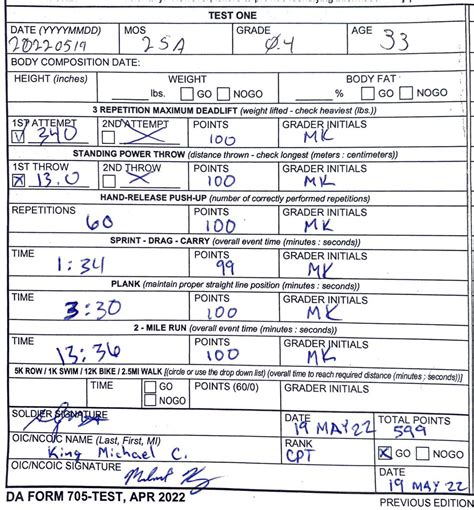 TEST ONE
DATE (YYYYMMDD) MOS GRADE AGE
20220519 25A O.4 33
BODY COMPOSITION DATE:
HEIGHT (inches) WEIGHT BODY FAT
lbs. GO NOGO % GO NOGO
3 REPETITION MAXIMUM DEADLIFT (weight lifted - check heaviest (lbs.))
1ST ATTEMPT 2ND ATTEMPT POINTS GRADER INITIALS
340 X 100 MK
STANDING POWER THROW (distance thrown - check longest (meters : centimeters))
1ST THROW 2ND THROW POINTS GRADER INITIALS
X 13.0 X 100 MK
HAND-RELEASE PUSH-UP (number of correctly performed repetitions)
REPETITIONS POINTS GRADER INITIALS
60 100 MK
SPRINT - DRAG - CARRY (overall event time (minutes : seconds))
TIME POINTS GRADER INITIALS
1:34 99 MK
PLANK (maintain proper straight line position (minutes : seconds))
TIME POINTS GRADER INITIALS
3:30 100 MK
2 - MILE RUN (overall event time (minutes : seconds))
TIME POINTS GRADER INITIALS
13:36 100 MK
5K ROW / 1K SWIM / 12K BIKE / 2.5MI WALK [(circle or use the drop down list) (overall time to reach required distance (minutes : seconds))]
TIME GO POINTS (60/0) GRADER INITIALS
NOGO
SOLDIER SIGNATURE DATE TOTAL POINTS
19 MAY 22 599
OIC/NCOIC NAME (Last, First, MI) RANK X GO NOGO
King Michael C. CPT
OIC/NCOIC SIGNATURE DATE
19 MAY 22
DA FORM 705-TEST, APR 2022 PREVIOUS EDITION